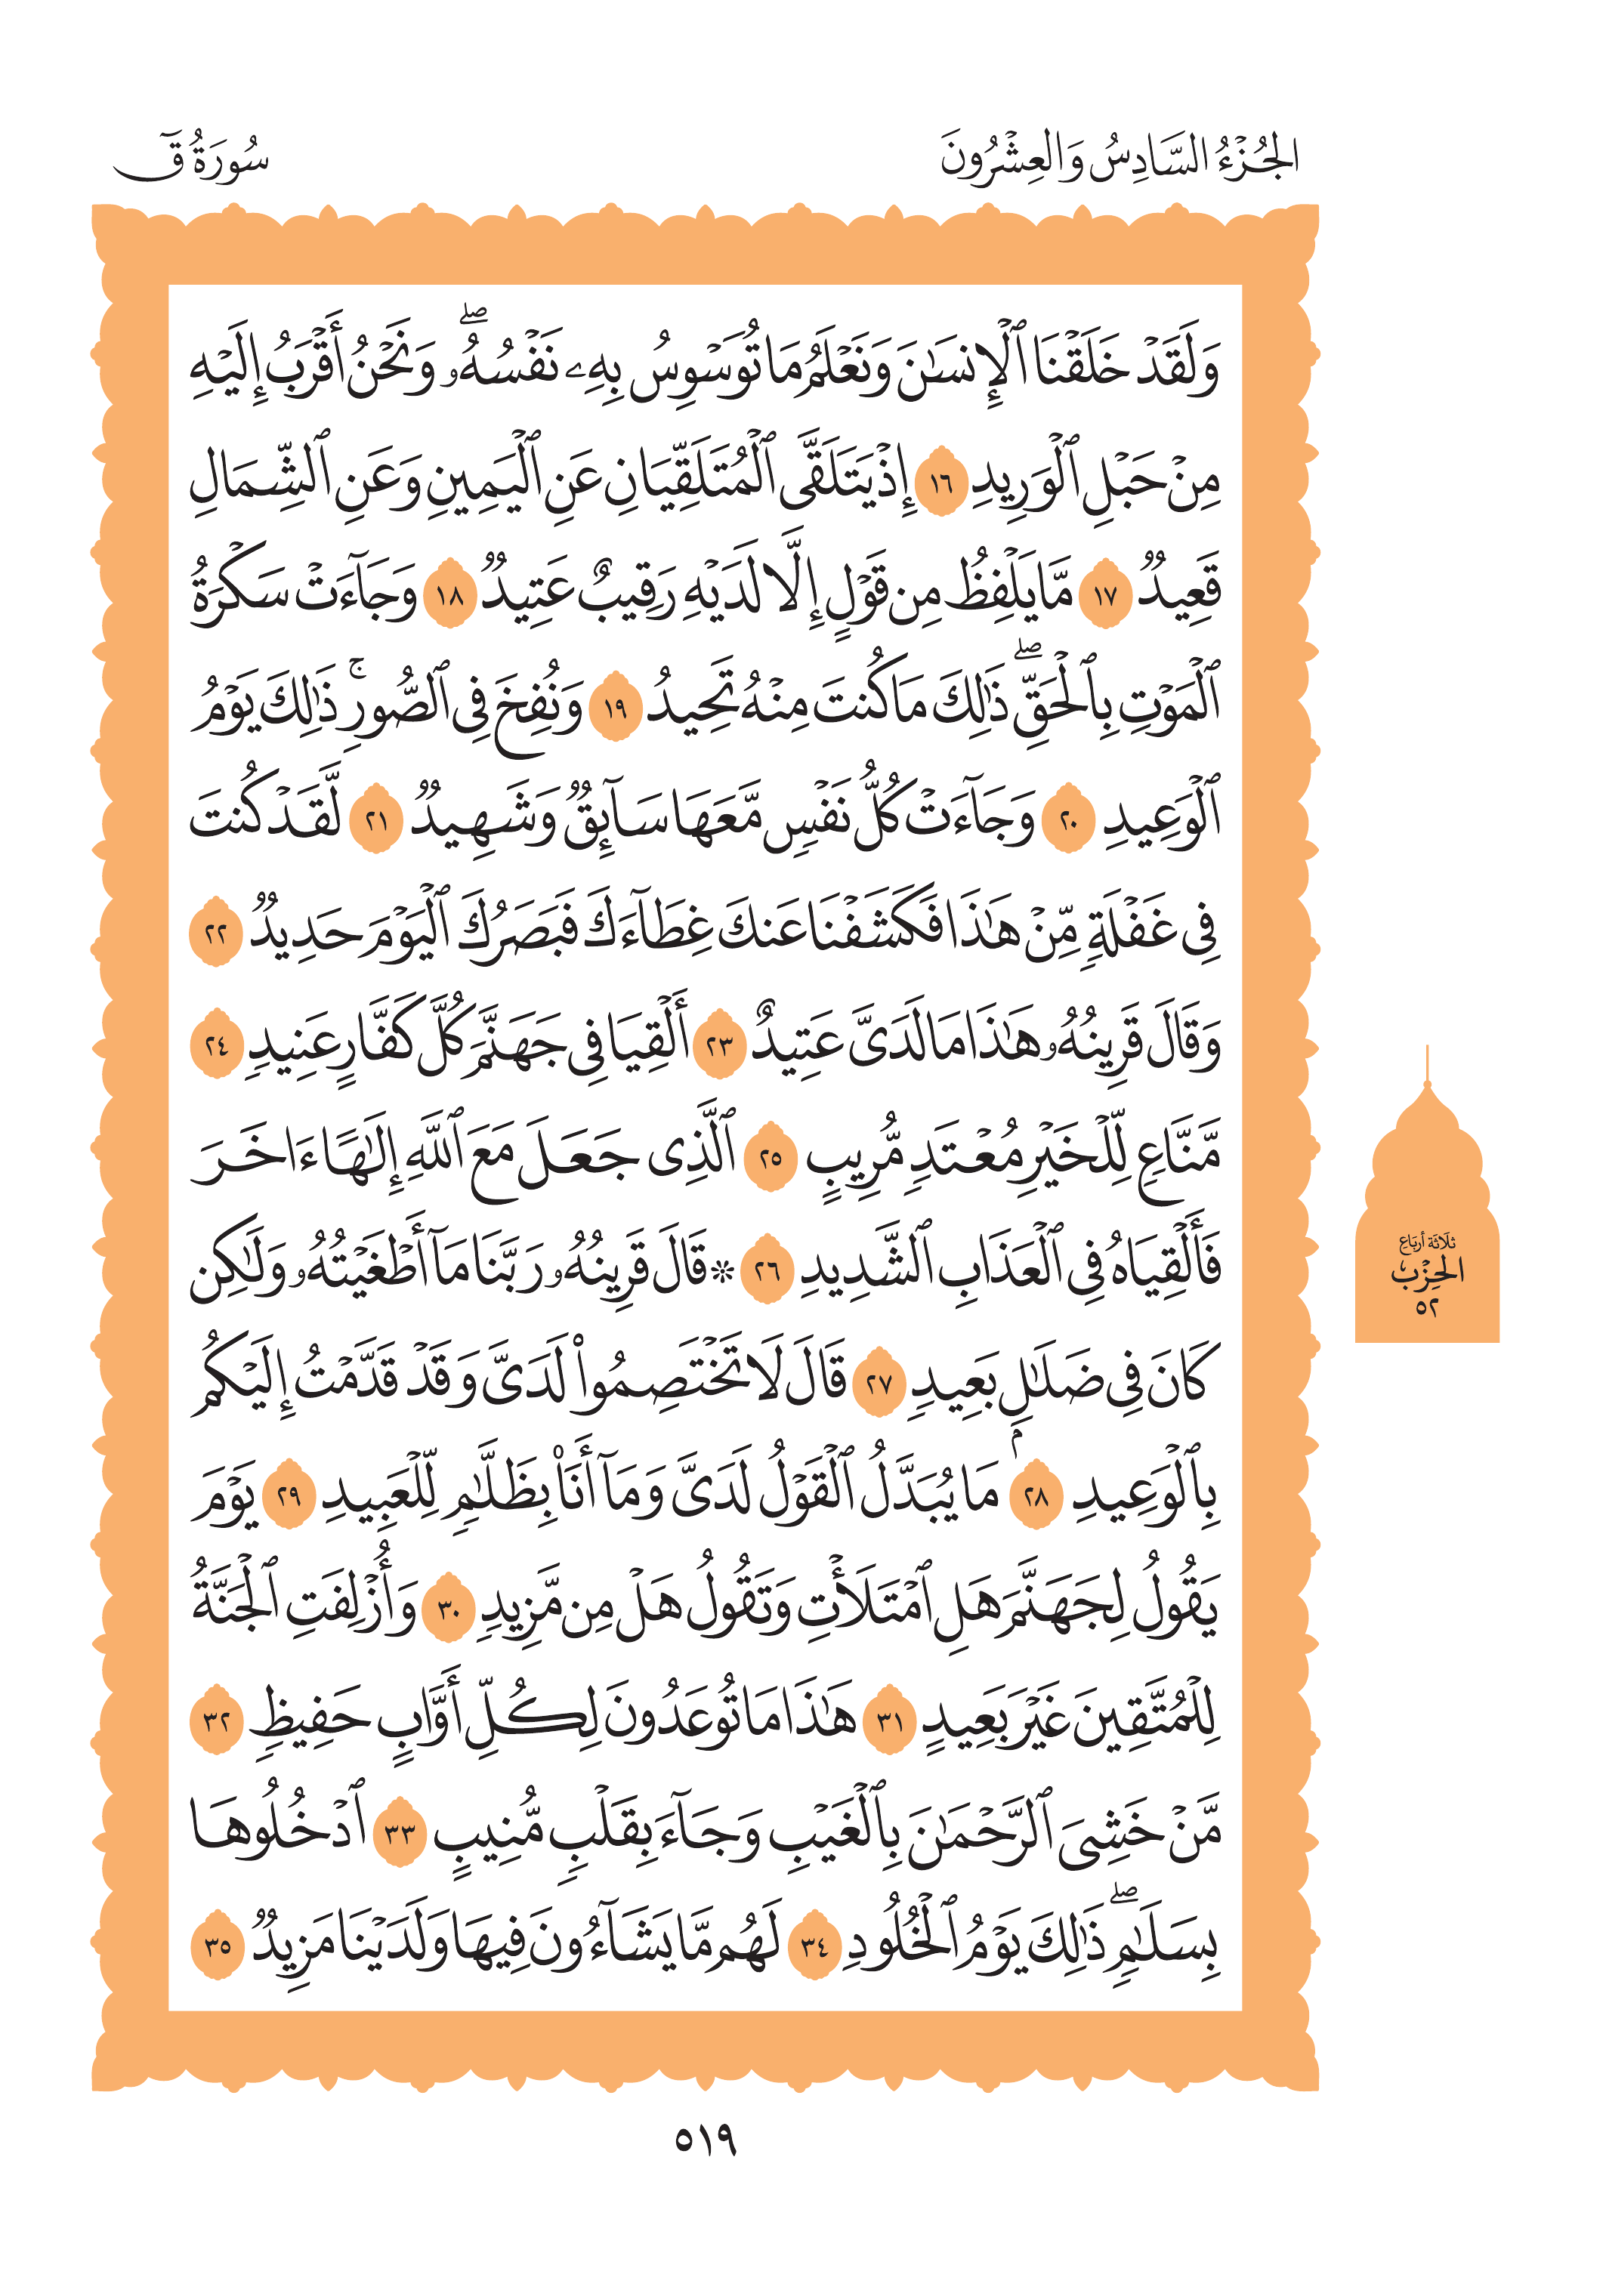 الجُزْءُ السَّادِسُ وَالعِشْرُونَ
سُورَةُ قٓ
وَلَقَدۡ خَلَقۡنَا ٱلۡإِنسَٰنَ وَنَعۡلَمُ مَا تُوَسۡوِسُ بِهِۦ نَفۡسُهُۥۖ وَنَحۡنُ أَقۡرَبُ إِلَيۡهِ
مِنۡ حَبۡلِ ٱلۡوَرِيدِ ١٦ إِذۡ يَتَلَقَّى ٱلۡمُتَلَقِّيَانِ عَنِ ٱلۡيَمِينِ وَعَنِ ٱلشِّمَالِ
قَعِيدٞ ١٧ مَّا يَلۡفِظُ مِن قَوۡلٍ إِلَّا لَدَيۡهِ رَقِيبٌ عَتِيدٞ ١٨ وَجَآءَتۡ سَكۡرَةُ
ٱلۡمَوۡتِ بِٱلۡحَقِّۖ ذَٰلِكَ مَا كُنتَ مِنۡهُ تَحِيدُ ١٩ وَنُفِخَ فِي ٱلصُّورِۚ ذَٰلِكَ يَوۡمُ
ٱلۡوَعِيدِ ٢٠ وَجَآءَتۡ كُلُّ نَفۡسٖ مَّعَهَا سَآئِقٞ وَشَهِيدٞ ٢١ لَّقَدۡ كُنتَ
فِي غَفۡلَةٖ مِّنۡ هَٰذَا فَكَشَفۡنَا عَنكَ غِطَآءَكَ فَبَصَرُكَ ٱلۡيَوۡمَ حَدِيدٞ ٢٢
وَقَالَ قَرِينُهُۥ هَٰذَا مَا لَدَيَّ عَتِيدٌ ٢٣ أَلۡقِيَا فِي جَهَنَّمَ كُلَّ كَفَّارٍ عَنِيدٖ ٢٤
مَّنَّاعٖ لِّلۡخَيۡرِ مُعۡتَدٖ مُّرِيبٍ ٢٥ ٱلَّذِي جَعَلَ مَعَ ٱللَّهِ إِلَٰهًا ءَاخَرَ
فَأَلۡقِيَاهُ فِي ٱلۡعَذَابِ ٱلشَّدِيدِ ٢٦ ۞ قَالَ قَرِينُهُۥ رَبَّنَا مَآ أَطۡغَيۡتُهُۥ وَلَٰكِن
كَانَ فِي ضَلَٰلِۭ بَعِيدٖ ٢٧ قَالَ لَا تَخۡتَصِمُواْ لَدَيَّ وَقَدۡ قَدَّمۡتُ إِلَيۡكُم
بِٱلۡوَعِيدِ ٢٨ مَا يُبَدَّلُ ٱلۡقَوۡلُ لَدَيَّ وَمَآ أَنَا۠ بِظَلَّٰمٖ لِّلۡعَبِيدِ ٢٩ يَوۡمَ
يَقُولُ لِجَهَنَّمَ هَلِ ٱمۡتَلَأۡتِ وَتَقُولُ هَلۡ مِن مَّزِيدٖ ٣٠ وَأُزۡلِفَتِ ٱلۡجَنَّةُ
لِلۡمُتَّقِينَ غَيۡرَ بَعِيدٍ ٣١ هَٰذَا مَا تُوعَدُونَ لِكُلِّ أَوَّابٍ حَفِيظٖ ٣٢
مَّنۡ خَشِيَ ٱلرَّحۡمَٰنَ بِٱلۡغَيۡبِ وَجَآءَ بِقَلۡبٖ مُّنِيبٍ ٣٣ ٱدۡخُلُوهَا
بِسَلَٰمٖۖ ذَٰلِكَ يَوۡمُ ٱلۡخُلُودِ ٣٤ لَهُم مَّا يَشَآءُونَ فِيهَا وَلَدَيۡنَا مَزِيدٞ ٣٥
ثلَاثَة أربَاع
الحِزْب
٥٢
٥١٩